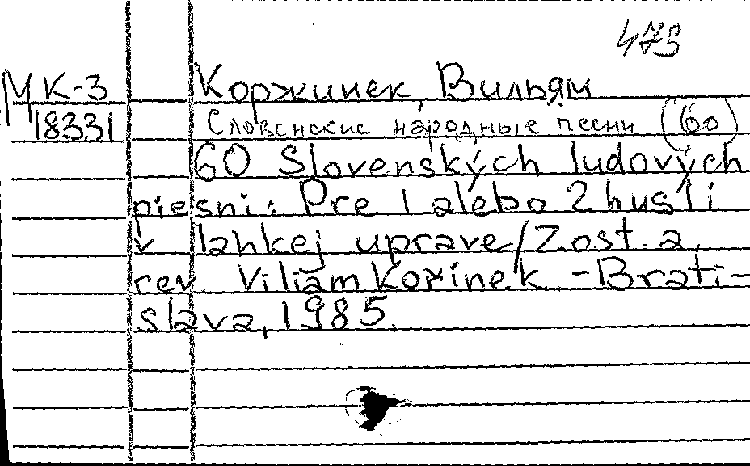 473
МК-3 Коржинек, Вильям
18331 Словенские народные песни (60)
60 Slovenských ludových
piesni: Pre 1 alebo 2 huslí
v lahkej uprave / Zost. a
rev Viliam Kořinek - Brati-
slava, 1985.